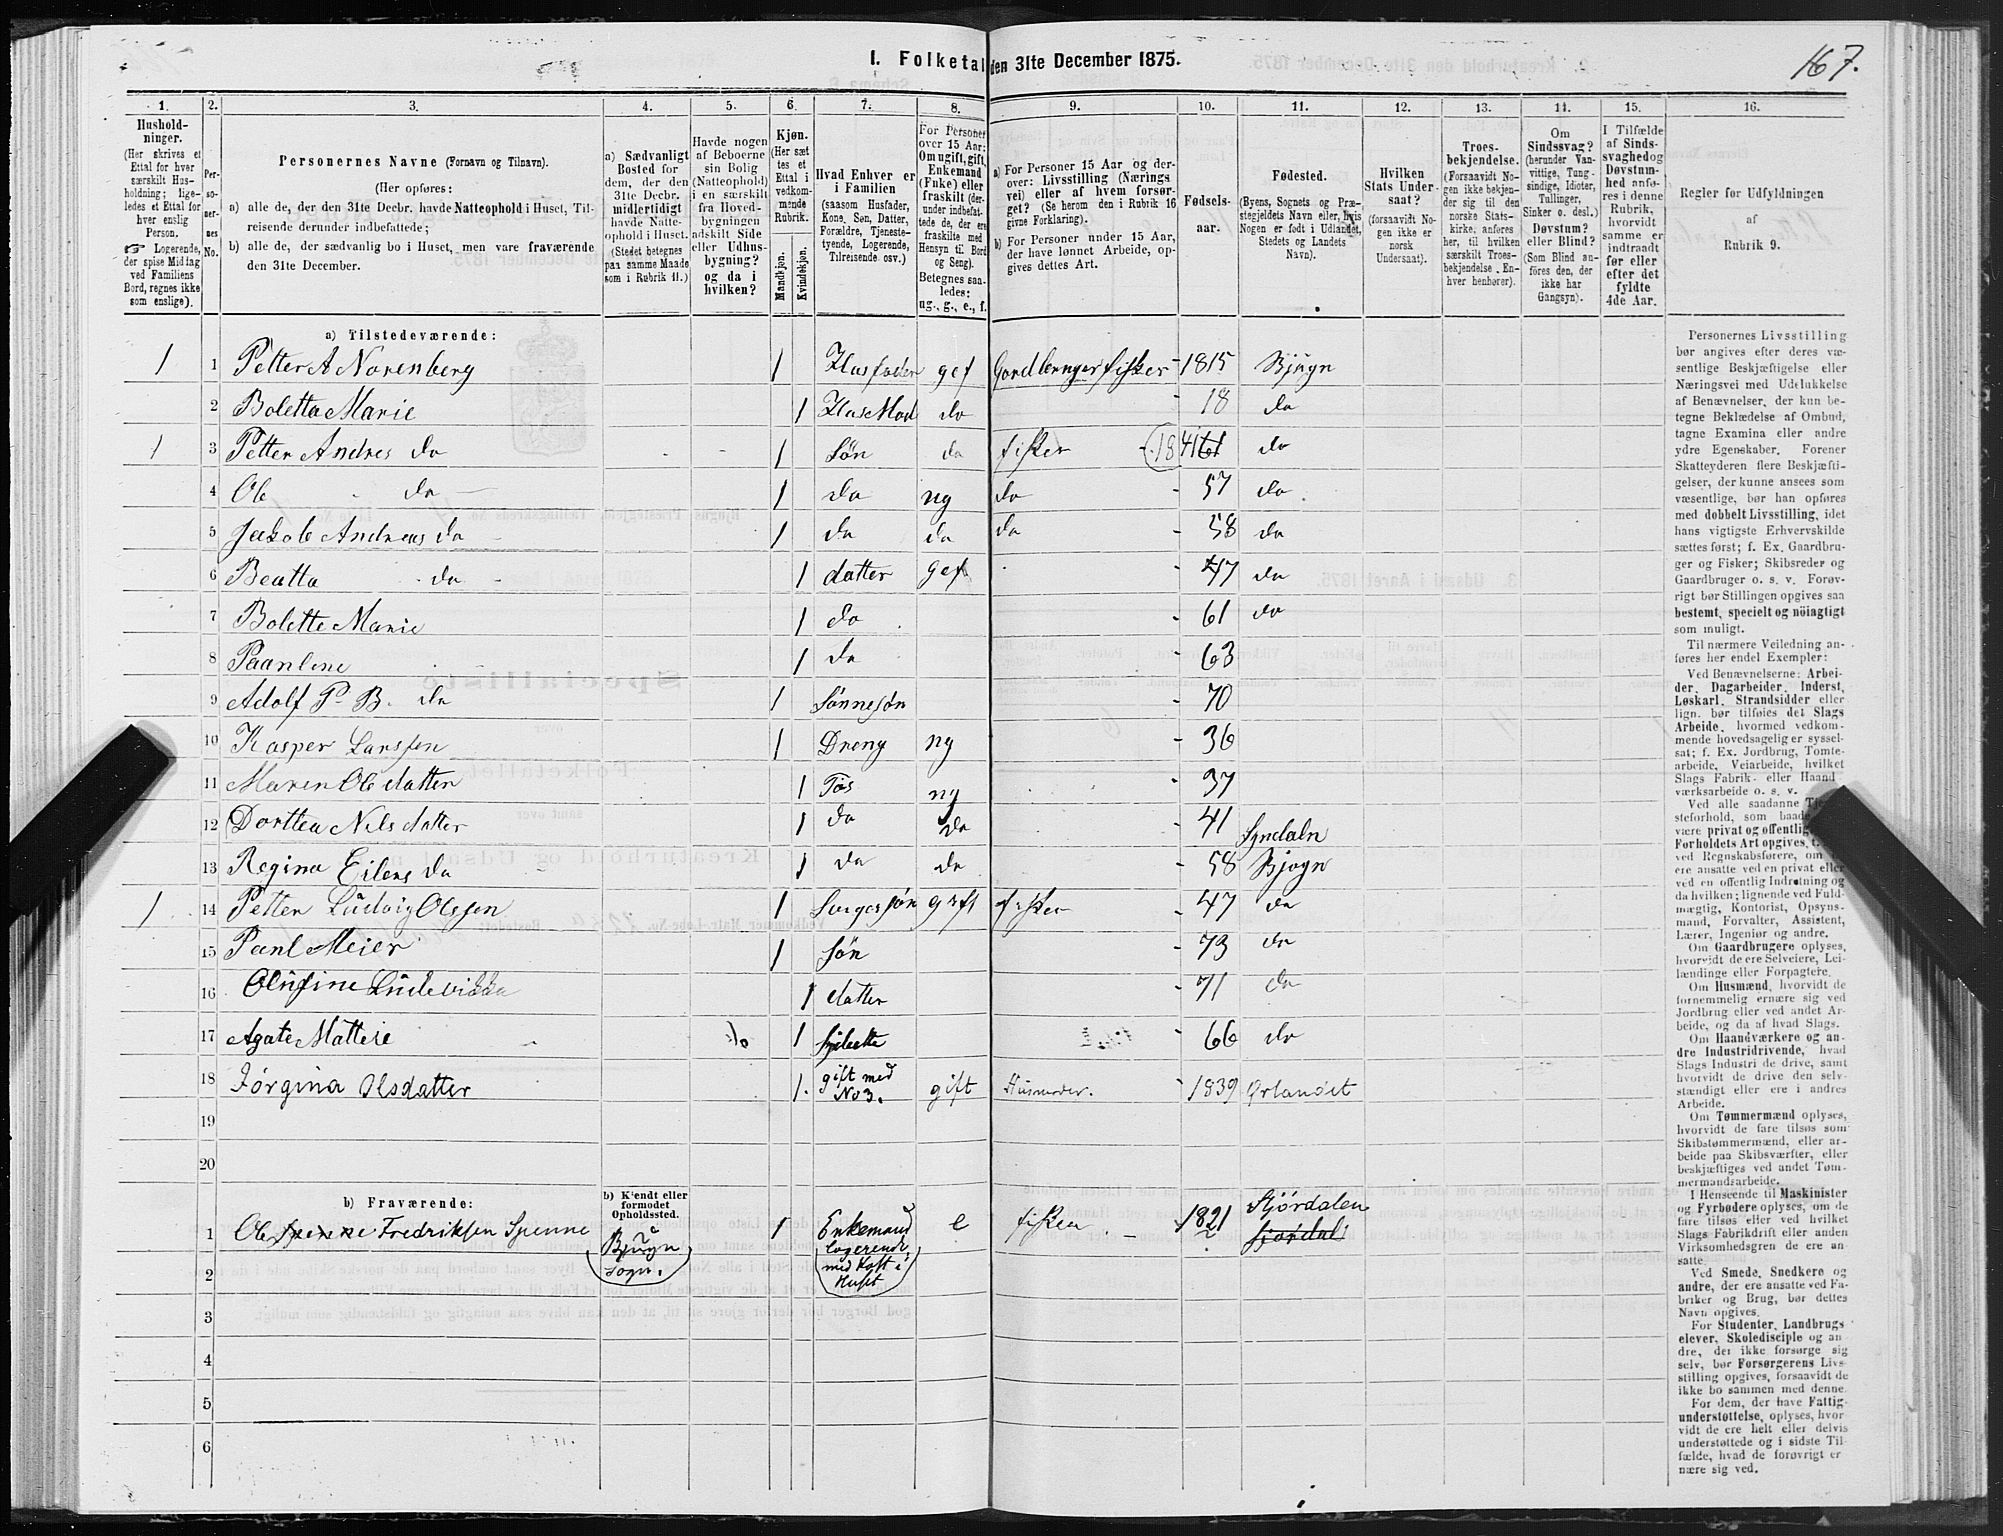 167.
I. Folketal den 31te December 1875.
1. 2. 3. 4. 5. 6. 7. 8. 9. 10. 11. 12. 13. 14. 15. 16.
Hushold-
ninger.
(Her skrives et
Ettal for hver
særskilt Hus-
holdning; lige-
ledes et Ettal for
hver enslig
Person.
☞ Logerende,
der spise Middag
ved Familiens
Bord, regnes ikke
som enslige).
Per-
so-
ner-
nes
No.
Personernes Navne (Fornavn og Tilnavn).
(Her opføres:
a) alle de, der den 31te Decbr. havde Natteophold i Huset, Til-
reisende derunder indbefattede;
b) alle de, der sædvanlig bo i Huset, men vare fraværende
den 31te December.
a) Sædvanligt
Bosted for
dem, der den
31te Decbr.
midlertidigt
havde Natte-
ophold i Huset.
(Stedet betegnes
paa samme Maade
som i Rubrik 11.)
Havde nogen
af Beboerne
sin Bolig
(Natteophold)
i en særskilt
fra Hoved-
bygningen
adskilt Side
eller Udhus-
bygning?
og da i
hvilken?
Kjøn.
(Her sæt
tes et
Ettal i
vedkom-
mende
Rubrik.
Mandkjøn.
Kvindekjøn.
Hvad Enhver er
i Familien
(saasom Husfader,
Kone, Søn, Datter,
Forældre, Tjeneste-
tyende, Logerende,
Tilreisende osv.)
For Personer
over 15 Aar:
Om ugift, gift,
Enkemand
(Enke) eller
fraskilt (der-
under indbefat-
tede de, der ere
fraskilte med
Hensyn til Bord
og Seng).
Betegnes saa-
ledes:
ug., g., e., f.
a) For Personer 15 Aar og der-
over: Livsstilling (Nærings
vei) eller af hvem forsør-
get? (Se herom den i Rubrik 16
givne Forklaring).
b) For Personer under 15 Aar,
der have lønnet Arbeide, op-
gives dettes Art.
Fødsels-
aar.
Fødested.
(Byens, Sognets og Præ-
stegjeldets Navn eller, hvis
Nogen er født i Udlandet,
Stedets og Landets
Navn).
Hvilken
Stats Under-
saat?
(forsaavidt No-
gen ikke er
norsk
Undersaat).
Troes-
bekjendelse.
(Forsaavidt No-
gen ikke bekjen-
der sig til den
norske Stats-
kirke, anføres
her, til hvilken
særskilt Troes-
bekjendelse En-
hver henhører).
Om
Sindssvag?
(herunder Van-
vittige, Tung-
sindige, Idioter,
Tullinger,
Sinker o. desl.)
Døvstum?
eller Blind?
(Som Blind an-
føres den, der
ikke har
Gangsyn).
I Tilfælde
af Sinds-
svaghed og
Døvstum-
hed anfø-
res i denne
Rubrik,
hvorvidt
samme er
indtraadt
før eller
efter det
fyldte
4de Aar.
Regler for Udfyldningen
af
Rubrik 9.
a) Tilstedeværende:
1 1 Petter A Norenberg 1 Husfader gef Gardbruger fisker - 1815 Bjugn
2 Boletta Marie 1 HusMod do - 18 do
1 3 Petter Andres do 1 Søn do fisker (1841 61 do
4 Ole do 1 do ug do - 57 do
5 Jakob Andreas do 1 do do do - 58 do
6 Beatta do 1 datter gef - 47 do
7 Bolette Marie 1 do - 61 do
8 Paanline 1 do - 63
9 Adolf P. B. do 1 Sønnesøn - 70
10 Kasper Larssen 1 Dreng ug - 36
11 Maren Olsdatter 1 Tøs ug - 37
12 Dorttea Nilsdatter 1 do do - 41
13 Regina Eilens do 1 do do - 58 Bjogn
1 14 Petter Ludvig Olssen 1 gift fisker - 47 do
15 Paul Meier 1 Søn - 73 do
16 Olufine Ludevikka 1 datter - 71 do
17 Agate Mattere 1 - 66 do
18 Jørgina Olsdatter 1. gift med No 3. gift - 1839 Ørlandet
19
20
b) Fraværende:
b) Kjendt eller
formodet
Opholdssted.
1 Ole Fredriksen Spenne Bjugn sogn. 1 Enkemand logerende med Kost i Huset e fisker - 1821 Stjørdalen
2
3
4
5
6
Personernes Livsstilling
bør angives efter deres væ-
sentlige Beskjæftigelse eller
Næringsvei med Udelukkelse
af Benævnelser, der kun be-
tegne Beklædelse af Ombud,
tagne Examina eller andre
ydre Egenskaber. Forener
Skatteyderen flere Beskjæfti-
gelser, der kunne ansees som
væsentlige, bør han opføres
med dobbelt Livsstilling, idet
hans vigtigste Erhvervskilde
sættes først; f. Ex. Gaardbru-
ger og Fisker; Skibsreder og
Gaardbruger o. s. v. Forøv-
rigt bør Stillingen opgives saa
bestemt, specielt og nöiagtigt
som muligt.
Til nærmere Veiledning an-
føres her endel Exempler:
Ved Benævnelserne: Arbei-
der, Dagarbeider, Inderst,
Løskarl, Strandsidder eller
lign. bør tilføies det Slags
Arbeide, hvormed vedkom-
mende hovedsagelig er syssel-
sat; f. Ex. Jordbrug, Tomte-
arbeide, Veiarbeide, hvilket
Slags Fabrik- eller Haand
værksarbeide o. s. v.
Ved alle saadanne
steforhold, som baade
være privat og offentlig
Forholdets Art opgives,
ved Regnskabsførere, om
ere ansatte ved en privat eller
ved en offentlig Indretning og
da hvilken; lignende ved Fuld-
mægtig, Kontorist, Opsyns-
mand, Forvalter, Assistent,
Lærer, Ingeniør og andre.
Om Gaardbrugere oplyses,
hvorvidt de ere Selveiere, Lei-
lændinge eller Forpagtere.
Om Husmænd, hvorvidt de
fornemmelig ernære sig ved
Jordbrug eller ved andet Ar-
beide, og da af hvad Slags.
Om Haandværkere og an-
dre Industridrivende, hvad
Slags Industri de drive, samt
hvorvidt de drive den selv-
stændigt eller ere i andres
Arbeide.
Om Tømmermænd oplyses,
hvorvidt de fare tilsøs som
Skibstømmermænd, eller ar-
beide paa Skibsværfter, eller
beskjæftiges ved andet Tøm-
mermandsarbeide.
I Henseende til Maskinister
og Fyrbødere oplyses, om de
fare tilsøs eller ved hvilket
Slags Fabrikdrift eller anden
Virksomhedsgren de ere an-
satte.
Ved Smede, Snedkere og
andre, der ere ansatte ved Fa-
briker og Brug, bør dettes
Navn opgives.
For Studenter, Landbrugs
elever, Skoledisciple og an
dre, der ikke forsørge sig
selv, bør Forsørgerens Livs-
stilling opgives, forsaavidt de
ikke bo sammen med denne.
For dem, der have Fattig-
understøttelse, oplyses, hvor
vidt de ere helt eller delvis
understøttede og i sidste Til-
fælde, hvad de forøvrigt er
nære sig ved.